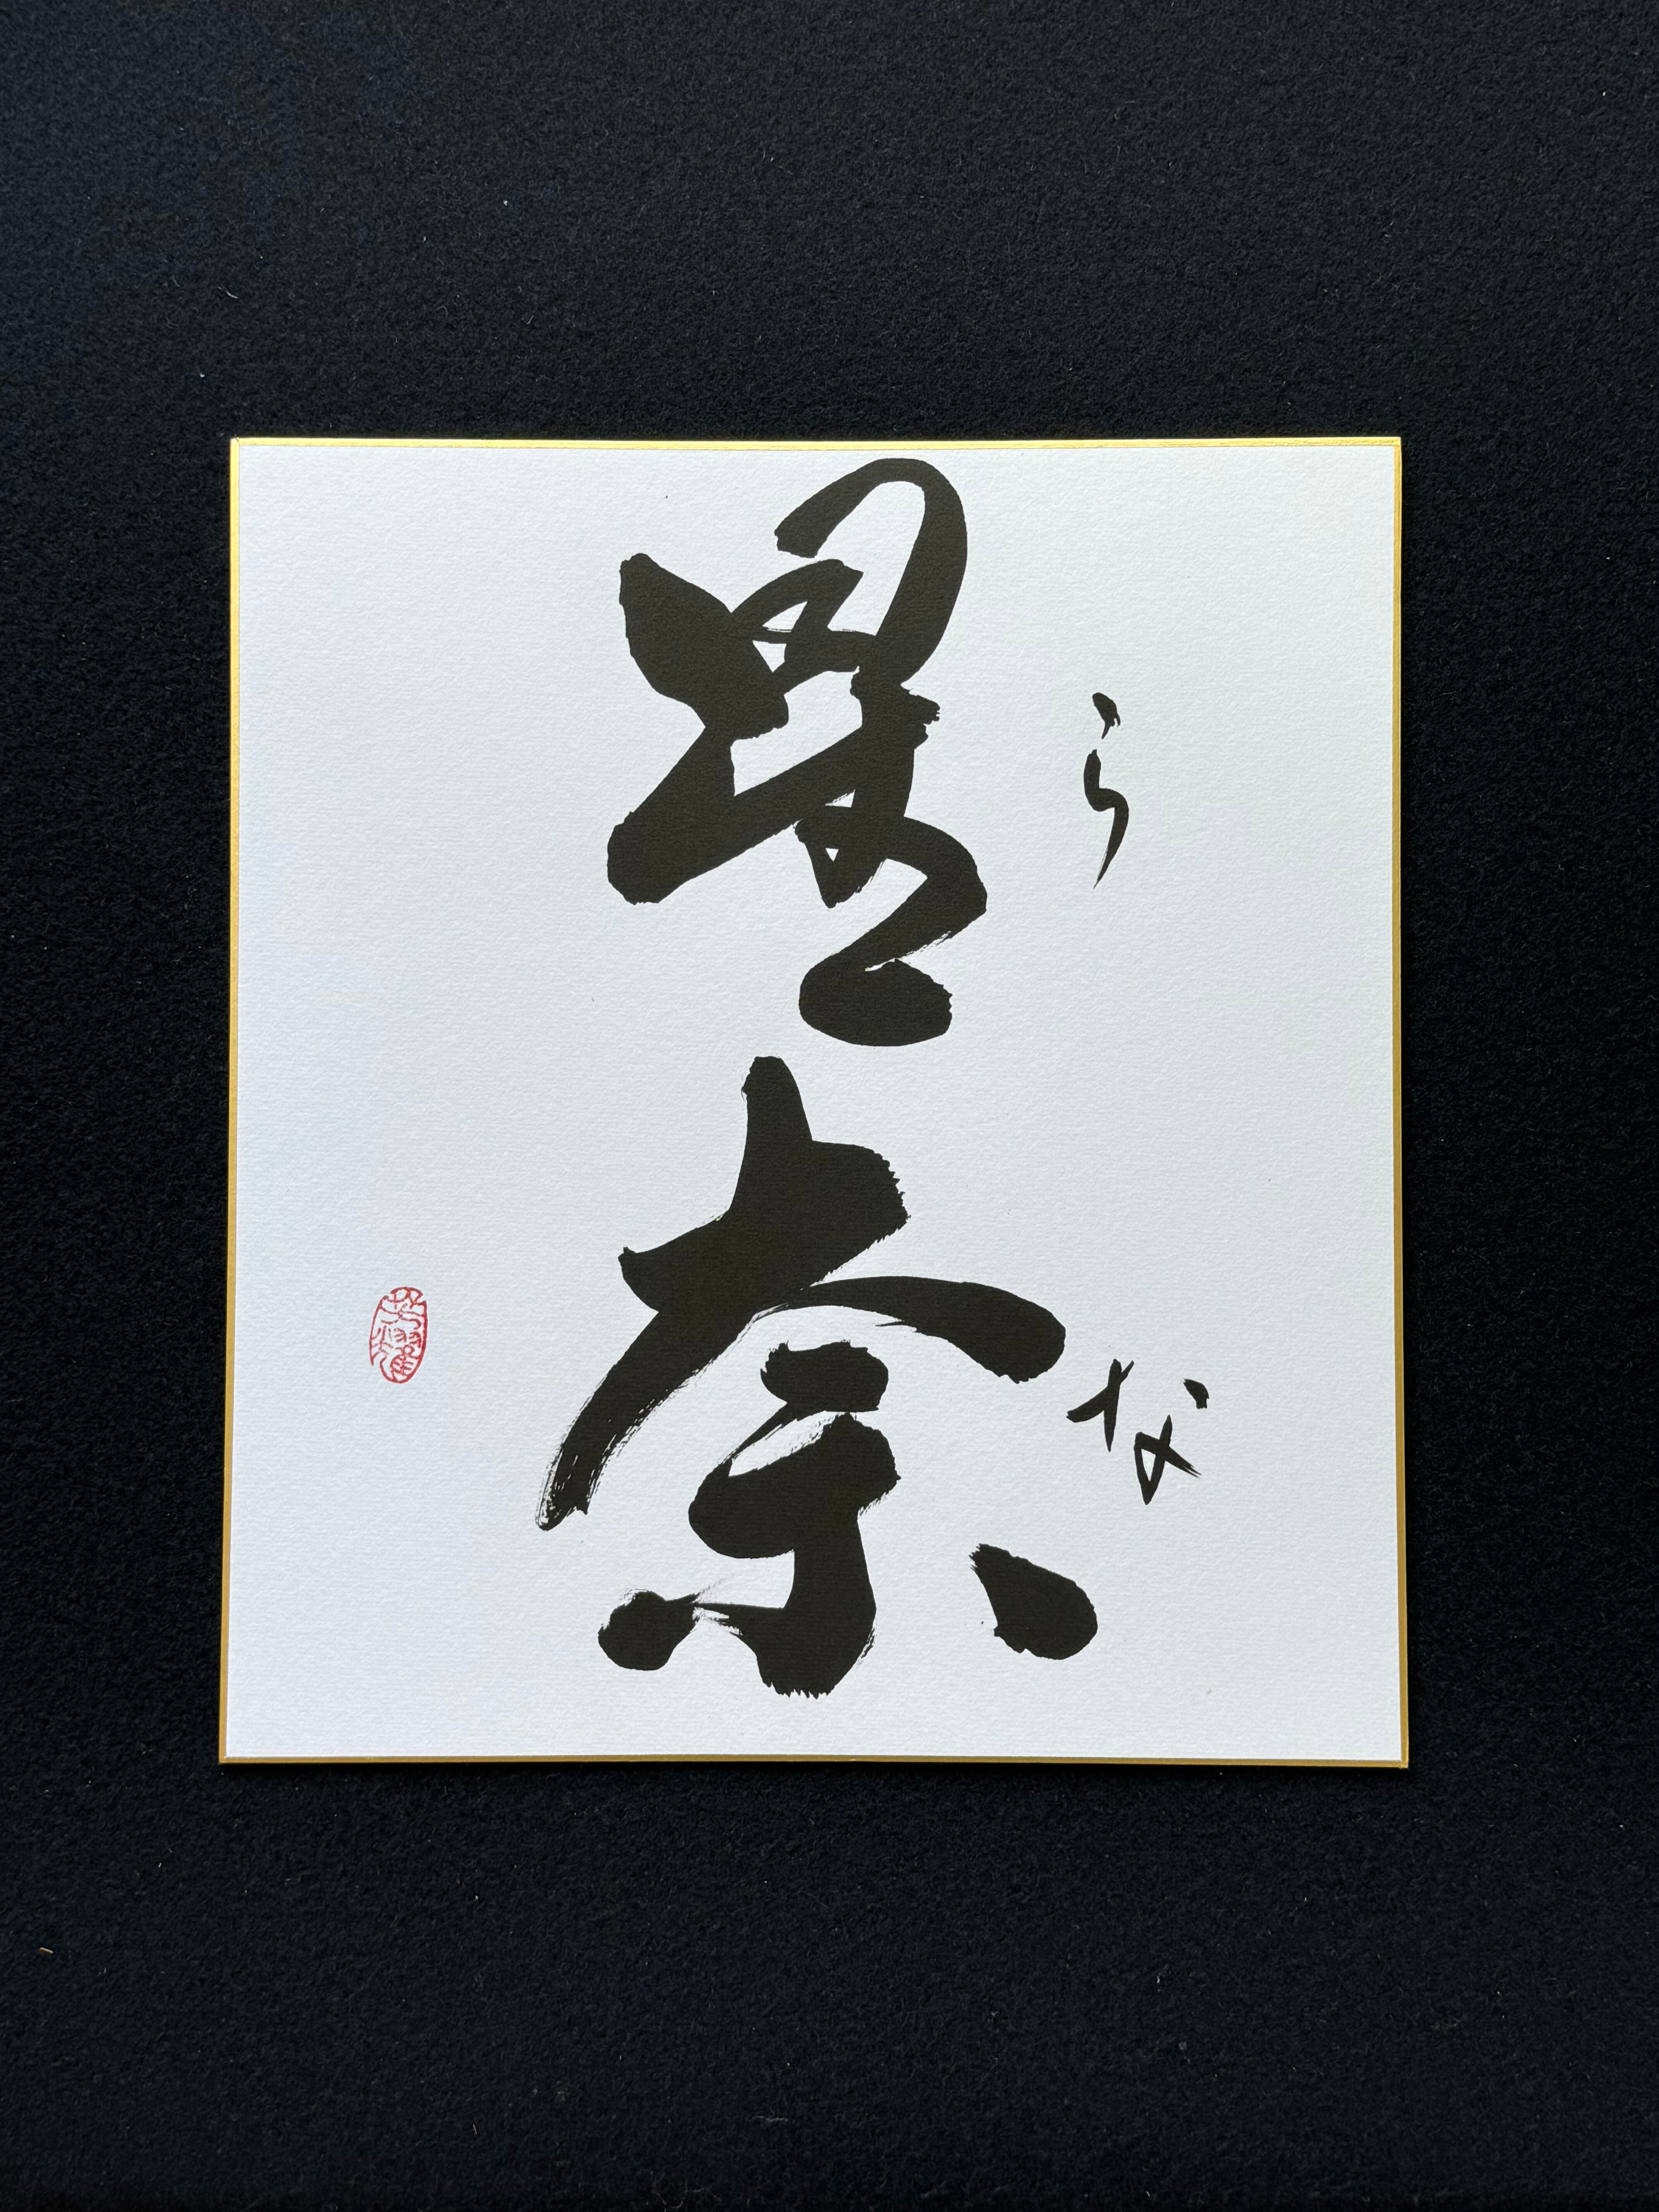 星奈
らな